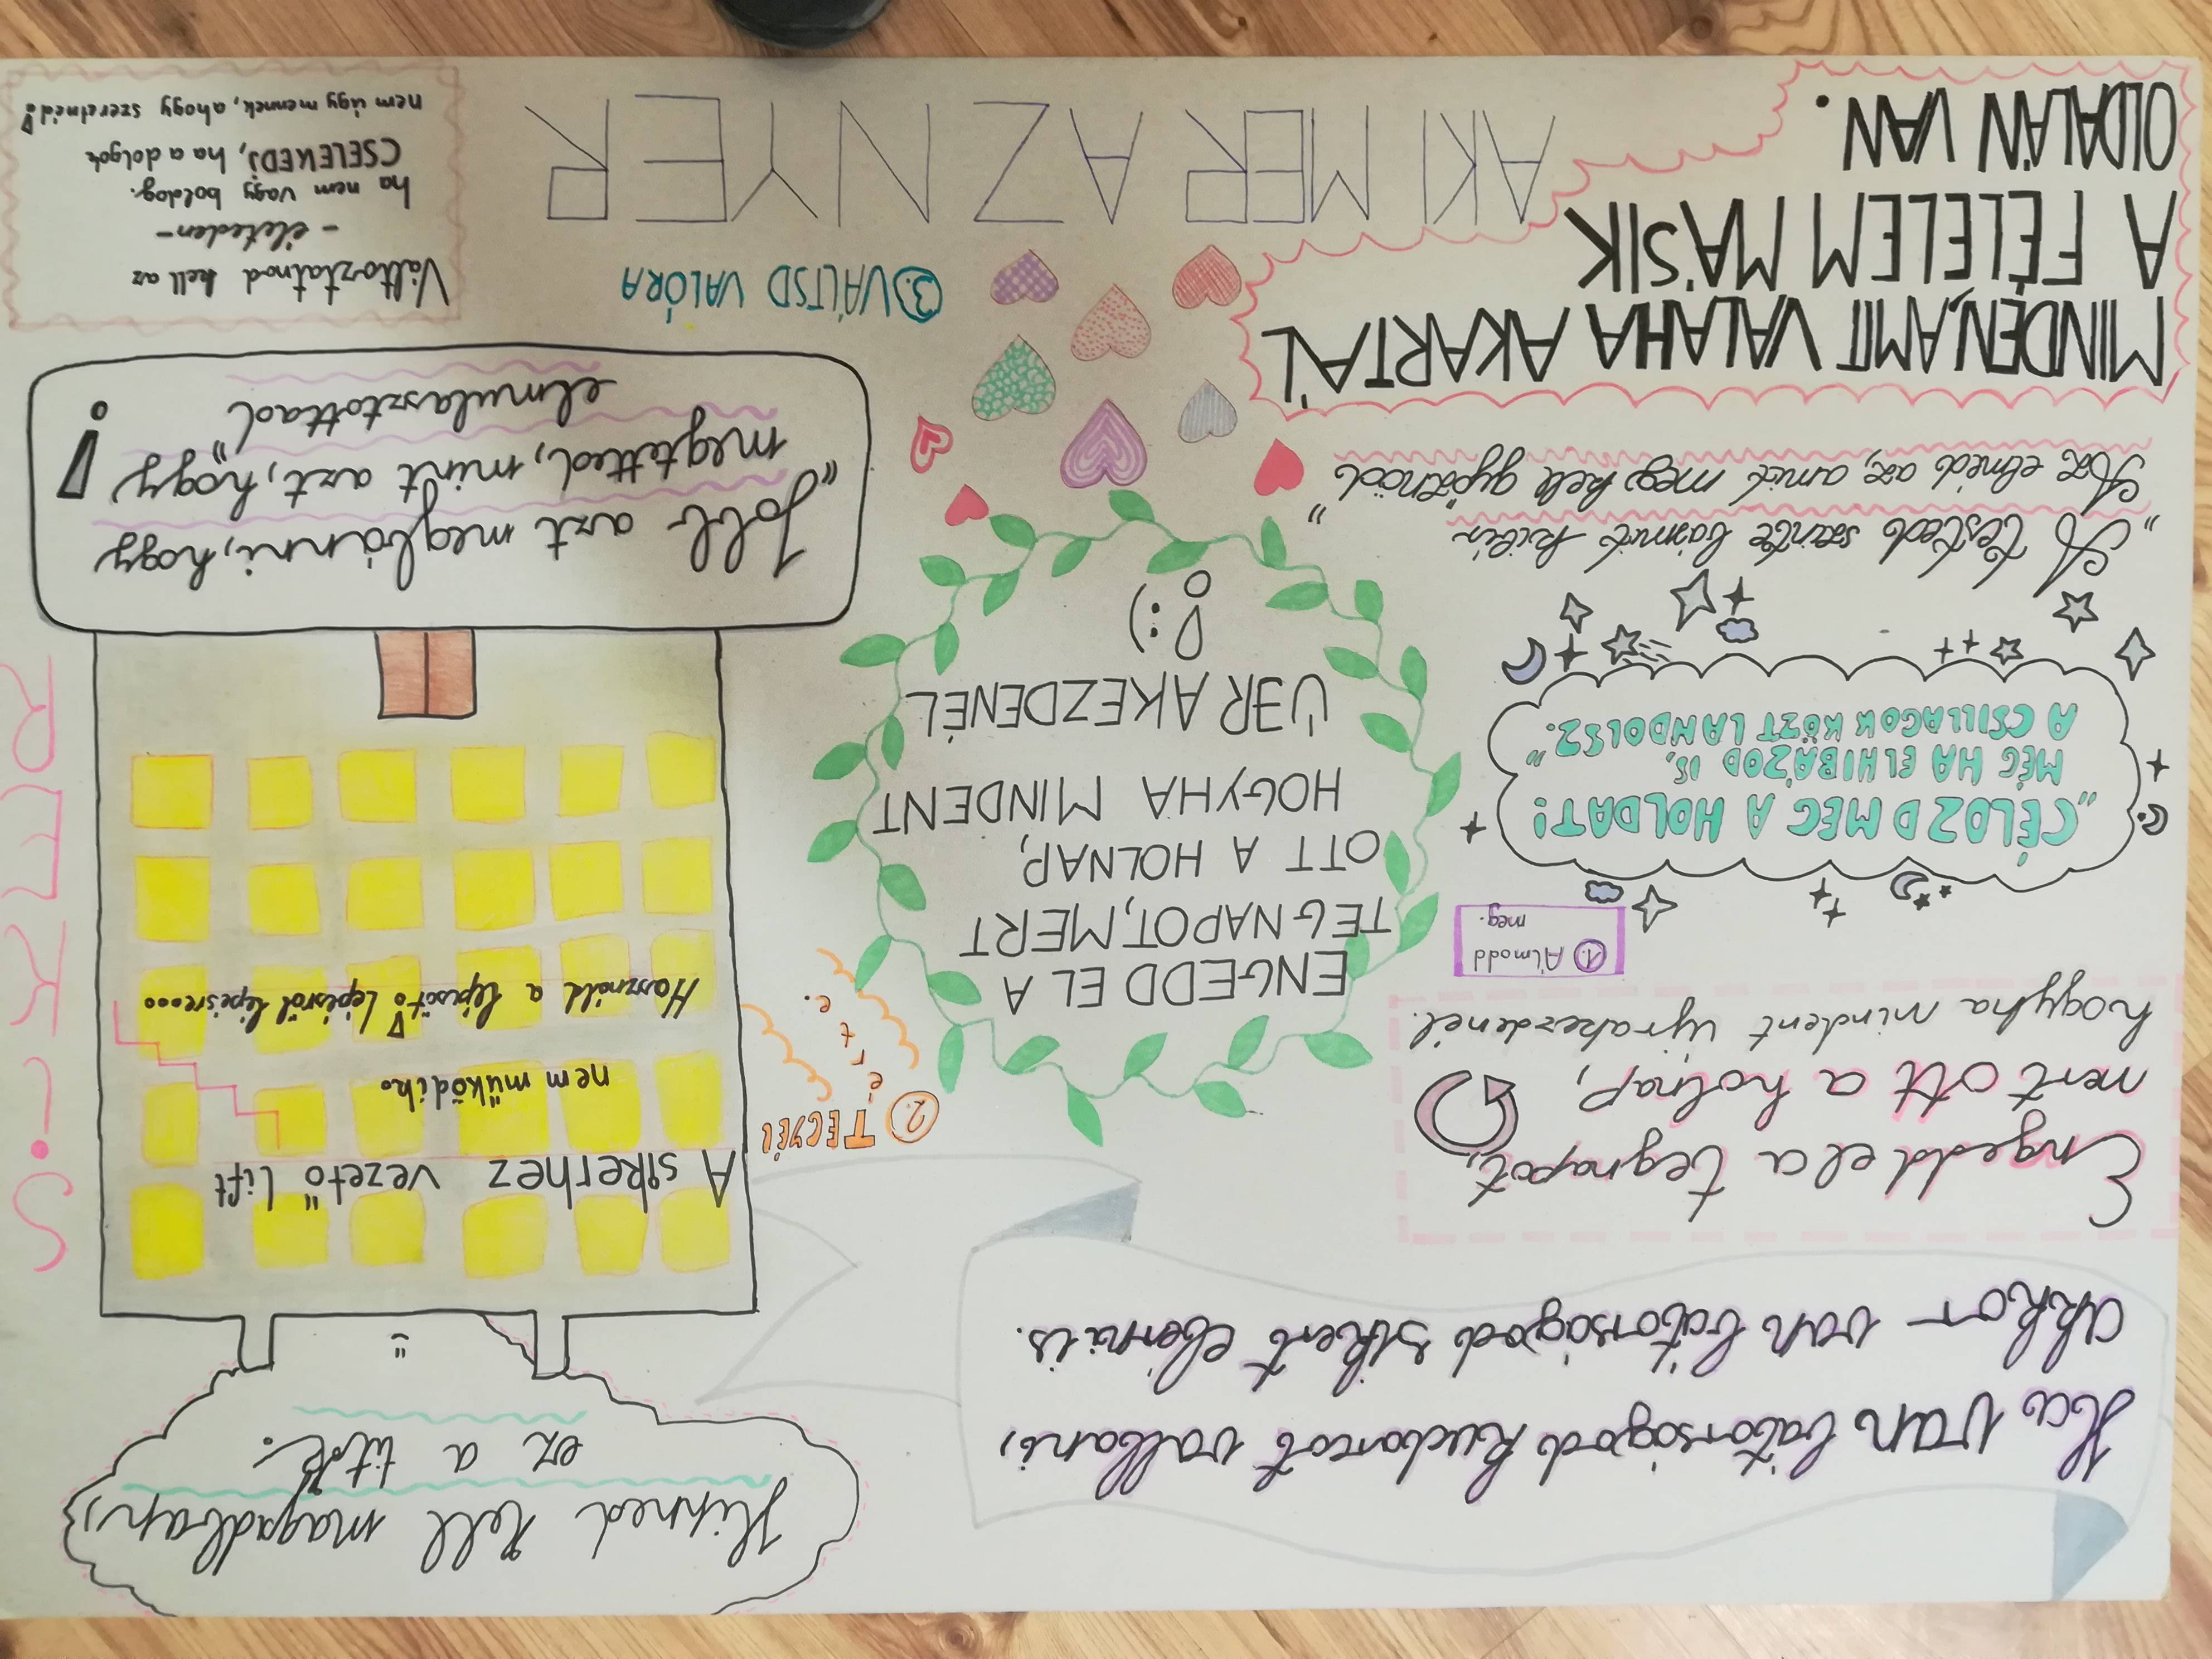 Ha van bátorságod kudarcot vallani,
akkor van bátorságod sikert elérni is.
Hinned kell magadban,
ez a titok.
Engedd el a tegnapot,
mert ott a holnap,
hogyha mindent újrakezdenél.
① Álmodd
meg.
„CÉLOZD MEG A HOLDAT!
MÉG HA ELHIBÁZOD IS,
A CSILLAGOK KÖZT LANDOLSZ."
„A tested szinte bármit kibír.
Az elméd az, amit meg kell győznöd"
MINDEN, AMIT VALAHA AKARTÁL
A FÉLELEM MÁSIK
OLDALÁN VAN.
② TEGYÉL
érte.
ENGEDD EL A
TEGNAPOT, MERT
OTT A HOLNAP,
HOGYHA MINDENT
ÚJRAKEZDENÉL
! :)
③ VÁLTSD VALÓRA
AKI MER AZ NYER
A sikerhez vezető lift
nem működik.
Használd a lépcsőt! Lépésről lépésre...
SIKER
„Jobb azt megbánni, hogy
megtetted, mint azt, hogy
elmulasztottad"
!
Változtatnod kell az
- életeden -
ha nem vagy boldog.
CSELEKEDJ, ha a dolgok
nem úgy mennek, ahogy szeretnéd!